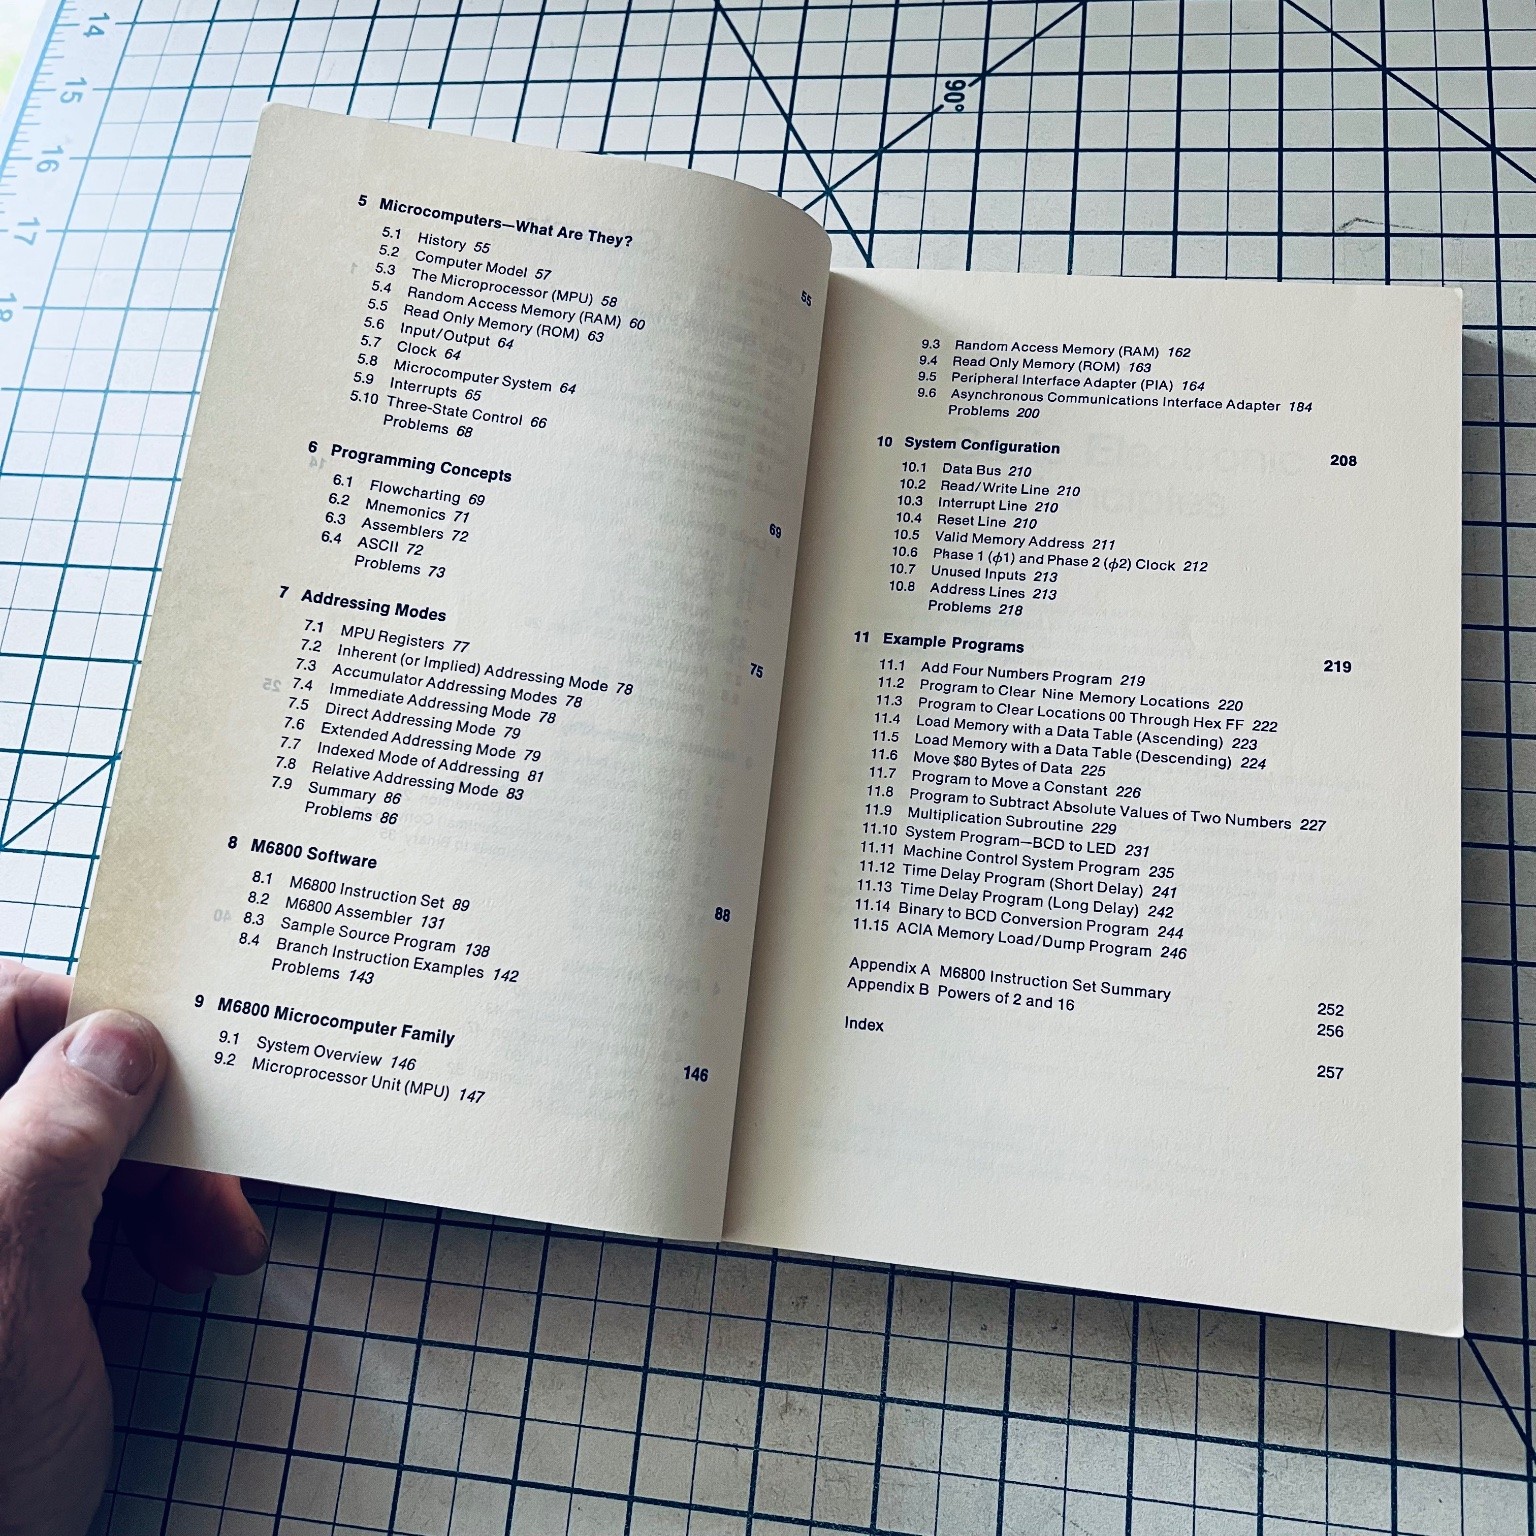 14
15
16
17
18
90°
5 Microcomputers—What Are They? 55
5.1 History 55
5.2 Computer Model 57
5.3 The Microprocessor (MPU) 58
5.4 Random Access Memory (RAM) 60
5.5 Read Only Memory (ROM) 63
5.6 Input/Output 64
5.7 Clock 64
5.8 Microcomputer System 64
5.9 Interrupts 65
5.10 Three-State Control 66
Problems 68
6 Programming Concepts 69
6.1 Flowcharting 69
6.2 Mnemonics 71
6.3 Assemblers 72
6.4 ASCII 72
Problems 73
7 Addressing Modes 75
7.1 MPU Registers 77
7.2 Inherent (or Implied) Addressing Mode 78
7.3 Accumulator Addressing Modes 78
7.4 Immediate Addressing Mode 78
7.5 Direct Addressing Mode 79
7.6 Extended Addressing Mode 79
7.7 Indexed Mode of Addressing 81
7.8 Relative Addressing Mode 83
7.9 Summary 86
Problems 86
8 M6800 Software 88
8.1 M6800 Instruction Set 89
8.2 M6800 Assembler 131
8.3 Sample Source Program 138
8.4 Branch Instruction Examples 142
Problems 143
9 M6800 Microcomputer Family 146
9.1 System Overview 146
9.2 Microprocessor Unit (MPU) 147
9.3 Random Access Memory (RAM) 162
9.4 Read Only Memory (ROM) 163
9.5 Peripheral Interface Adapter (PIA) 164
9.6 Asynchronous Communications Interface Adapter 184
Problems 200
10 System Configuration 208
10.1 Data Bus 210
10.2 Read/Write Line 210
10.3 Interrupt Line 210
10.4 Reset Line 210
10.5 Valid Memory Address 211
10.6 Phase 1 (ϕ1) and Phase 2 (ϕ2) Clock 212
10.7 Unused Inputs 213
10.8 Address Lines 213
Problems 218
11 Example Programs 219
11.1 Add Four Numbers Program 219
11.2 Program to Clear Nine Memory Locations 220
11.3 Program to Clear Locations 00 Through Hex FF 222
11.4 Load Memory with a Data Table (Ascending) 223
11.5 Load Memory with a Data Table (Descending) 224
11.6 Move $80 Bytes of Data 225
11.7 Program to Move a Constant 226
11.8 Program to Subtract Absolute Values of Two Numbers 227
11.9 Multiplication Subroutine 229
11.10 System Program—BCD to LED 231
11.11 Machine Control System Program 235
11.12 Time Delay Program (Short Delay) 241
11.13 Time Delay Program (Long Delay) 242
11.14 Binary to BCD Conversion Program 244
11.15 ACIA Memory Load/Dump Program 246
Appendix A M6800 Instruction Set Summary 252
Appendix B Powers of 2 and 16 256
Index 257